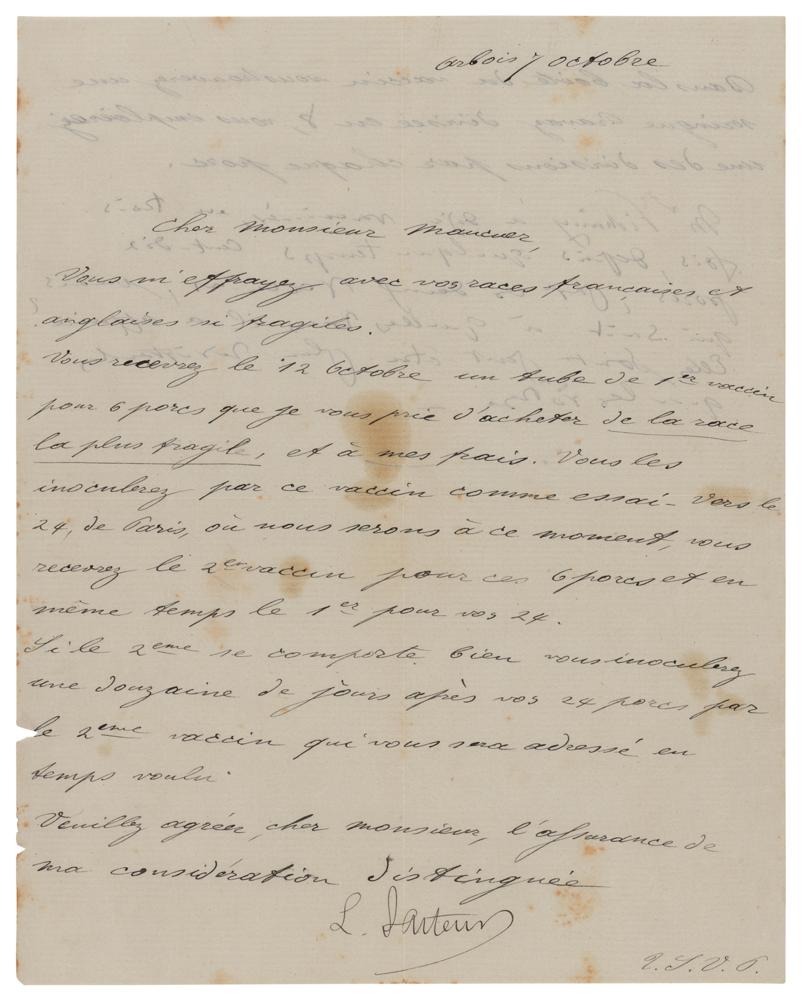 Arbois 7 octobre
Cher monsieur Maucuer,
Vous m'effrayez avec vos races françaises et
anglaises si fragiles.
Vous recevrez le 12 Octobre un tube de 1er vaccin
pour 6 porcs que je vous prie d'acheter de la race
la plus fragile, et à mes frais. Vous les
inoculerez par ce vaccin comme essai - Vers le
24, de Paris, où nous serons à ce moment, vous
recevrez le 2em vaccin pour ces 6 porcs et en
même temps le 1er pour vos 24.
Si le 2eme se comporte bien vous inoculerez
une douzaine de jours après vos 24 porcs par
le 2eme vaccin qui vous sera adressé en
temps voulu.
Veuillez agréer, cher monsieur, l'assurance de
ma considération distinguée
L. Pasteur
T.S.V.P.